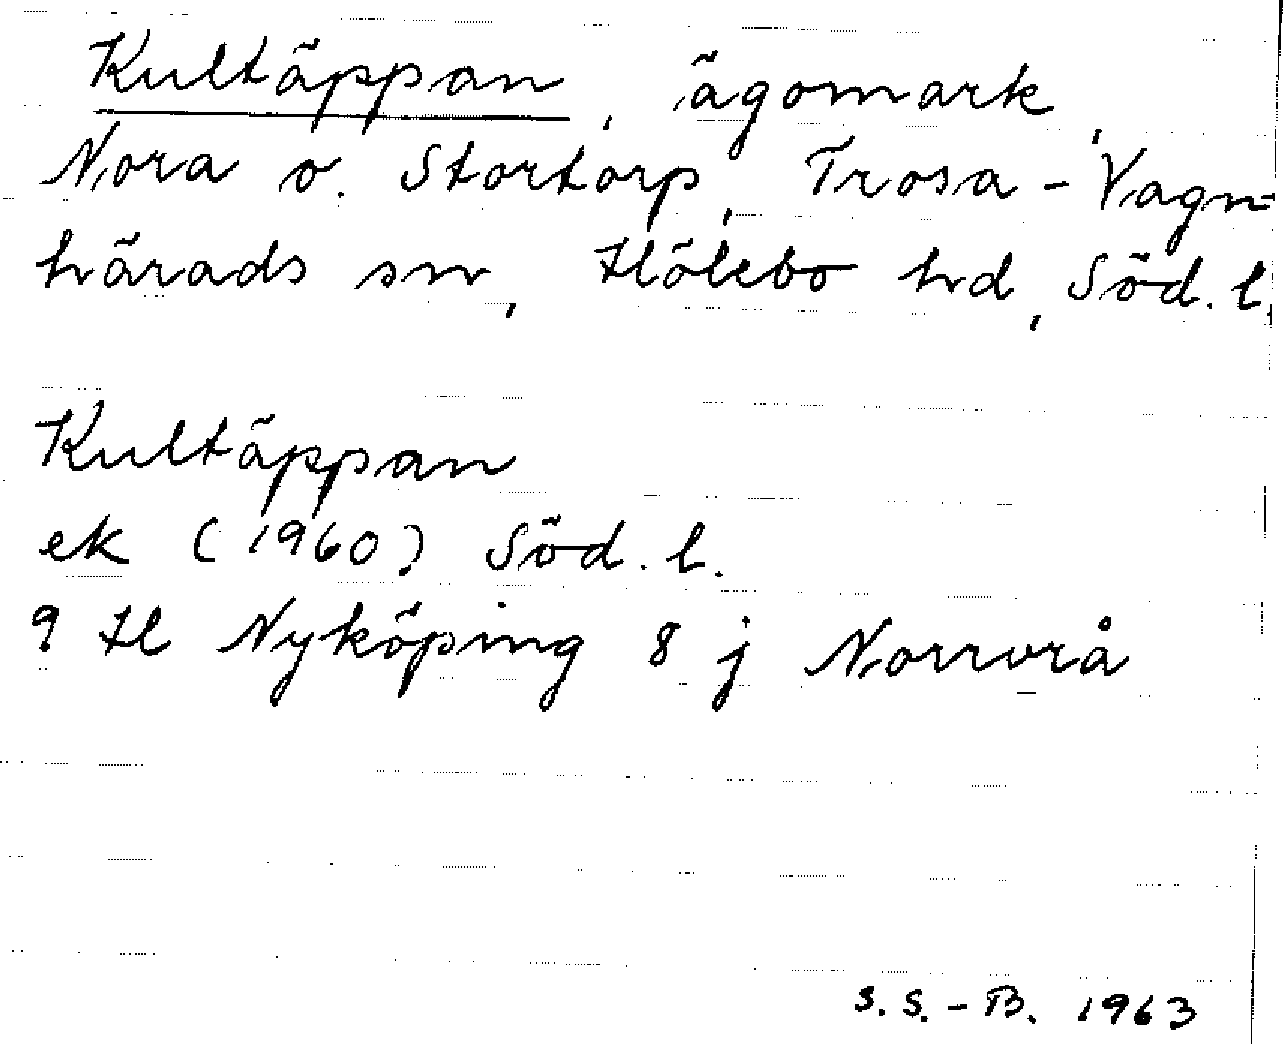 Kultäppan, ägomark,
Nora o. Stortorp, Trosa-Vagn-
härads sn, Hölebo hd, Söd. l.
Kultäppan
ek (1960) Söd. l.
9 H Nyköping 8 j Norrvrå
S. S.-B. 1963